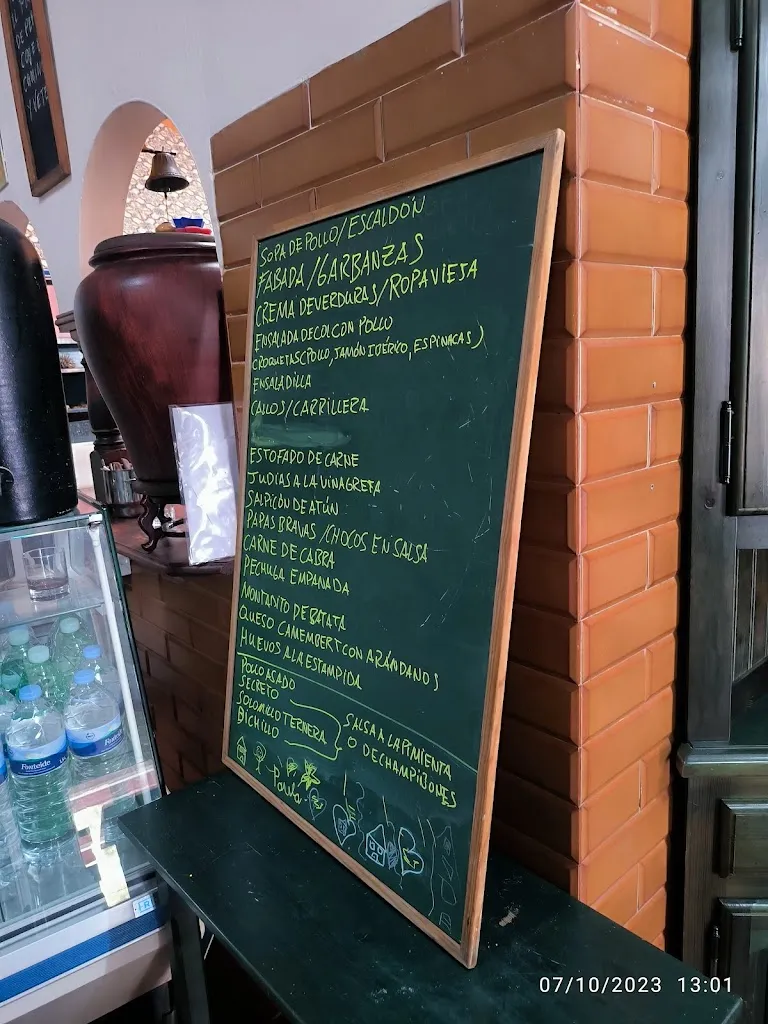 SOPA DE POLLO/ESCALDÓN
FABADA/GARBANZAS
CREMA DE VERDURAS/ROPAVIEJA
ENSALADA DE COL CON POLLO
CROQUETAS(POLLO, JAMÓN IBÉRICO, ESPINACAS)
ENSALADILLA
CALLOS/CARRILLERA
ESTOFADO DE CARNE
JUDIAS A LA VINAGRETA
SALPICÓN DE ATÚN
PAPAS BRAVAS/CHOCOS EN SALSA
CARNE DE CABRA
PECHUGA EMPANADA
MONTADITO DE BATATA
QUESO CAMEMBERT CON ARÁNDANOS
HUEVOS A LA ESTAMPIDA
POLLO ASADO
SECRETO
SOLOMILLO TERNERA
BICHILLO
SALSA A LA PIMIENTA
O DE CHAMPIÑONES
Fonteide
07/10/2023 13:01